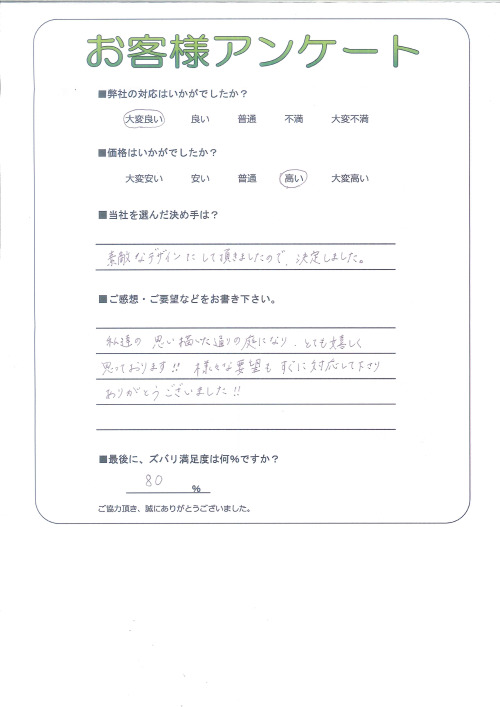 お客様アンケート
■弊社の対応はいかがでしたか？
大変良い 良い 普通 不満 大変不満
■価格はいかがでしたか？
大変安い 安い 普通 高い 大変高い
■当社を選んだ決め手は？
素敵なデザインにして頂きましたので、決定しました。
■ご感想・ご要望などをお書き下さい。
私達の 思い描いた通りの庭になり、とても嬉しく
思っております!! 様々な要望も すぐに対応して下さり
ありがとうございました!!
■最後に、ズバリ満足度は何%ですか？
80 %
ご協力頂き、誠にありがとうございました。